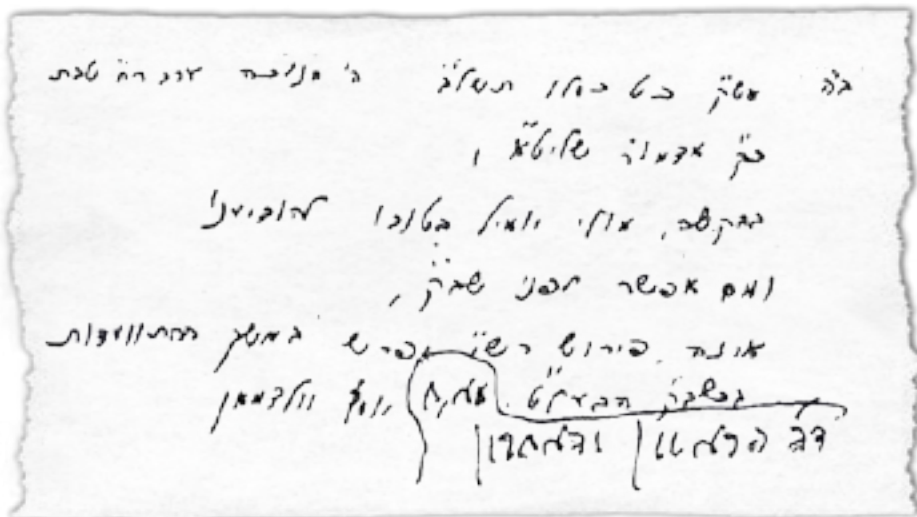 ב"ה עש"ק כט כסלו תשל"ב ה' חנוכה ערב ר"ח טבת
כ"ק אדמו"ר שליט"א,
בבקשה, אולי יואיל בטובו להודיעני
ואם אפשר לפני שב"ק,
איזה פירוש רש"י יפרש במשך ההתוועדות
בש"ק הבעל"ט. יואל וולדמאן